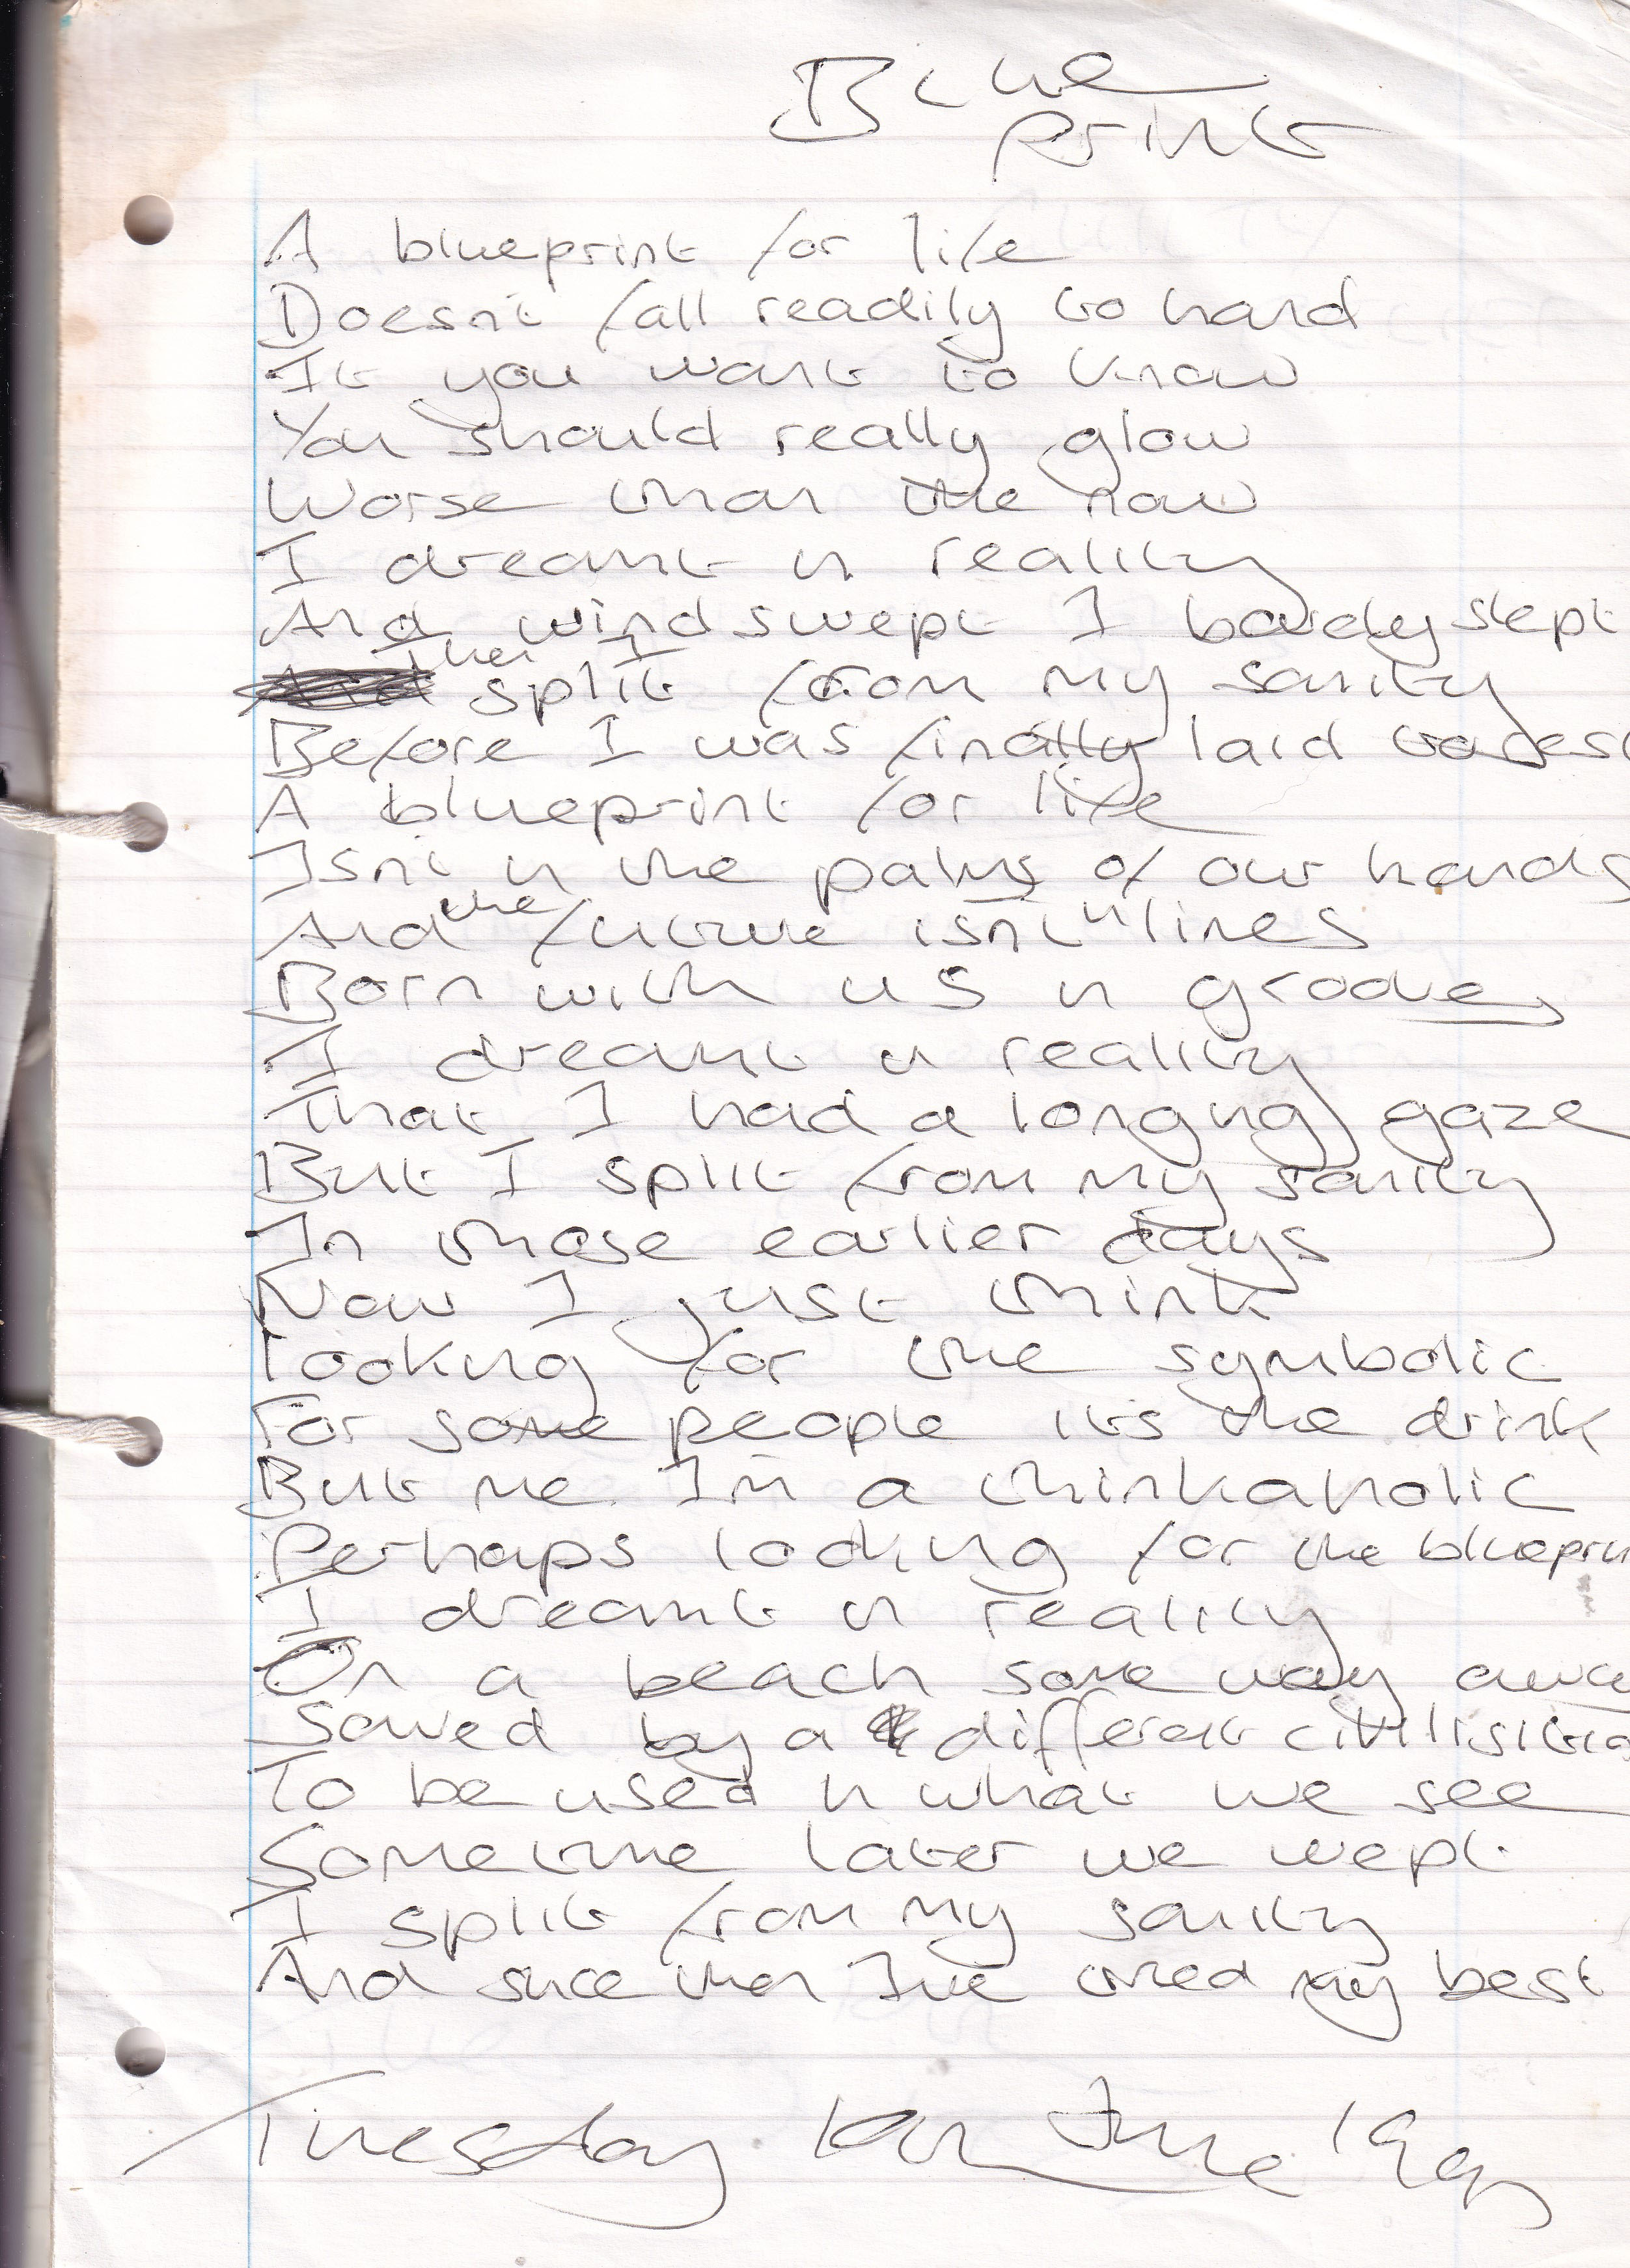 Blue
print
A blueprint for life
Doesn't fall readily to hand
If you want to know
You should really glow
Worse than the now
I dreamt in reality
And windswept I barely slept
Then I split from my sanity
Before I was finally laid to rest
A blueprint for life
Isn't in the palms of our hands
And the future isn't in lines
Born with us in grooves
I dreamt in reality
That I had a longing gaze
But I split from my sanity
In those earlier days
Now I just think
looking for the symbolic
For some people it's the drink
But me I'm a thinkaholic
Perhaps looking for the blueprin
I dreamt in reality
On a beach some way awa
Saved by a different civilisitio
To be used in what we see
Sometime later we wept
I split from my sanity
And since then I've tried my best
Tuesday June